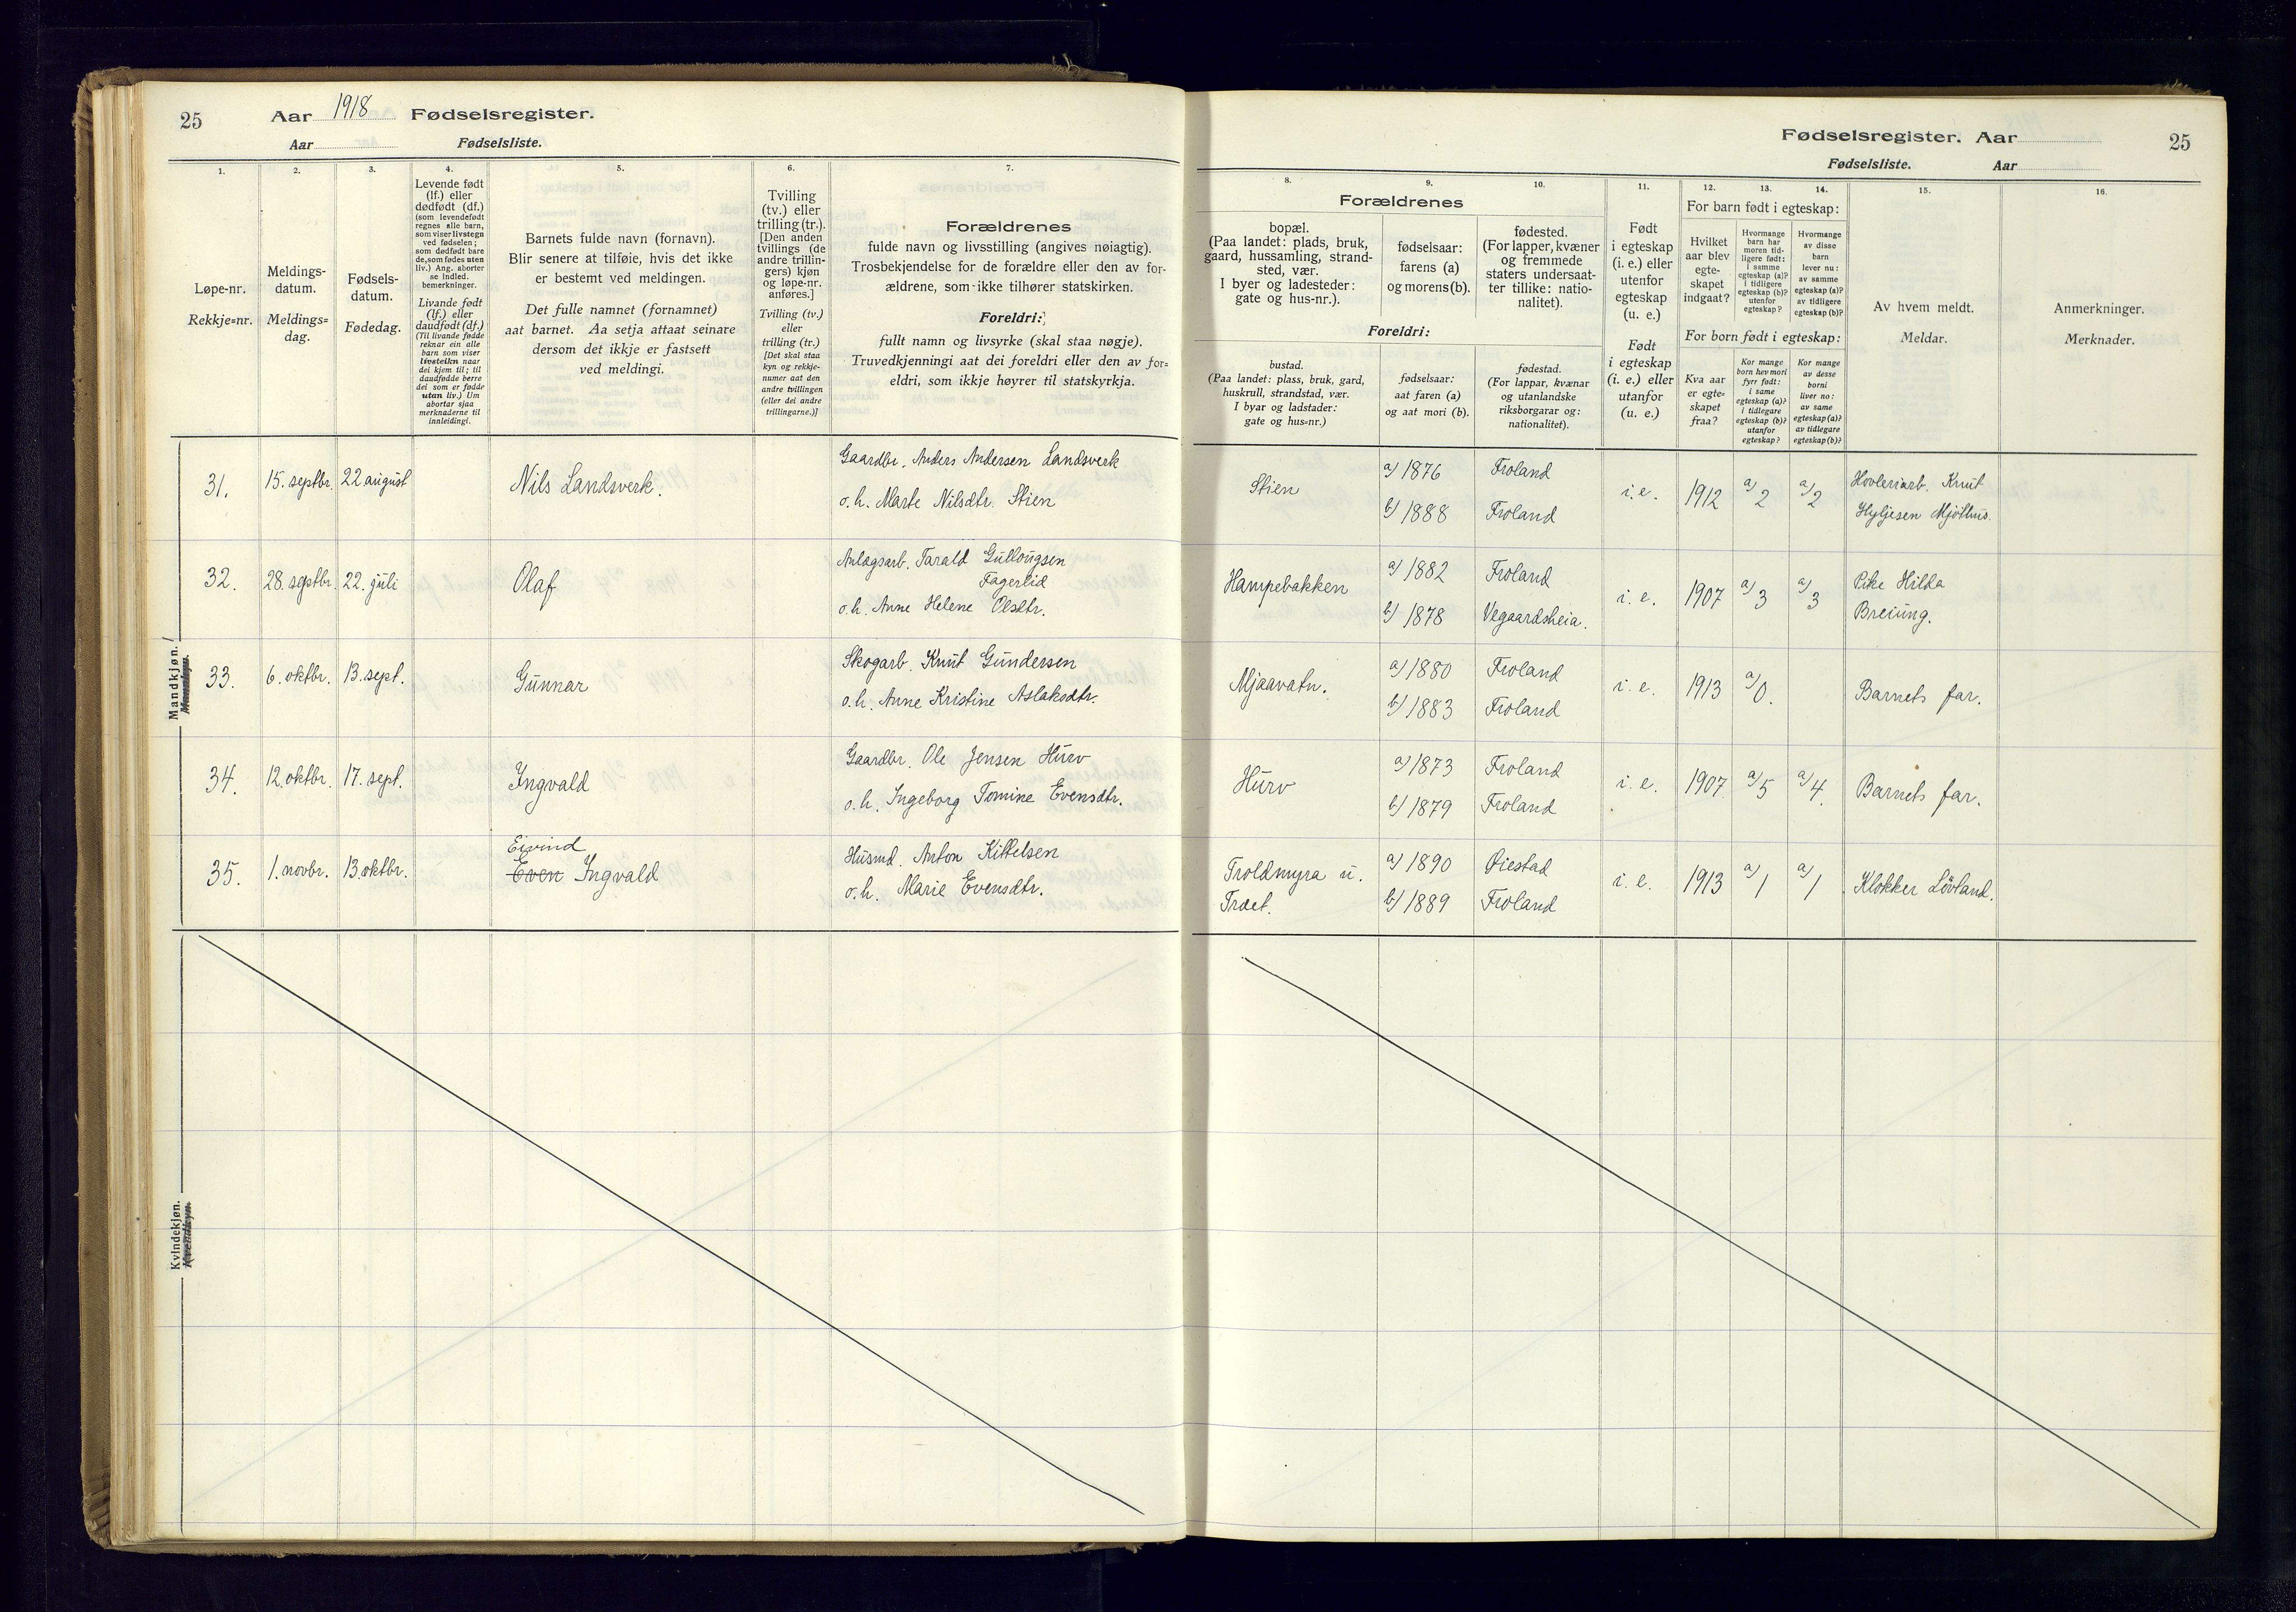 25
Aar 1918 Fødselsregister.
Aar Fødselsliste.
1.
Løpe-nr.
Rekkje=nr.
2.
Meldings-
datum.
Meldings=
dag.
3.
Fødsels-
datum.
Fødedag.
4.
Levende født
(lf.) eller
dødfødt (df.)
(som levendefødt
regnes alle barn,
som viser livstegn
ved fødselen;
som dødfødt bare
de, som fødes uten
liv.) Ang. aborter
se indled.
bemerkninger.
Livande født
(lf.) eller
daudfødt (df.)
(Til livande fødde
reknar ein alle
barn som viser
livsteikn naar
dei kjem til; til
daudfødde berre
dei som er fødde
utan liv.) Um
abortar sjaa
merknaderne til
innleidingi.
5.
Barnets fulde navn (fornavn).
Blir senere at tilføie, hvis det ikke
er bestemt ved meldingen.
Det fulle namnet (fornamnet)
aat barnet. Aa setja attaat seinare
dersom det ikkje er fastsett
ved meldingi.
6.
Tvilling
(tv.) eller
trilling (tr.).
[Den anden
tvillings (de
andre trillin-
gers) kjøn
og løpe-nr.
anføres.]
Tvilling (tv.)
eller
trilling (tr.)
[Det skal staa
kyn og rekkje-
numer aat den
andre tvillingen
(eller dei andre
trillingarne.)]
7.
Forældrenes
fulde navn og livsstilling (angives nøiagtig).
Trosbekjendelse for de forældre eller den av for-
ældrene, som ikke tilhører statskirken.
Foreldri:
fullt namn og livsyrke (skal staa nøgje).
Truvedkjenningi aat dei foreldri eller den av for=
eldri, som ikkje høyrer til statskyrkja.
Mandkjøn.
31. 15. septbr. 22 august Nils Landsverk. Gaardbr. Anders Andersen Landsverk
o. h. Marte Nilsdtr. Stien
32. 28. septbr. 22. juli Olaf Anlægsarb. Tarald Gulloügsen
Fagerlid
o. h. Anne Helene Olsdtr.
33. 6. oktbr. 13. sept. Gunnar Skogarb. Knut Gundersen
o. h. Anne Kristine Aslaksdtr.
34. 12. oktbr. 17. sept. Ingvald Gaardbr. Ole Jensen Hurv
o. h. Ingeborg Tomine Evensdtr.
Eivind
35. 1. novbr. 13. oktbr. Even Ingvald Husmd. Anton Kittelsen
o. h. Marie Evensdtr.
Kvindekjøn.
Fødselsregister. Aar 25
Fødselsliste. Aar
8.
Forældrenes
bopæl.
(Paa landet: plads, bruk,
gaard, hussamling, strand-
sted, vær.
I byer og ladesteder:
gate og hus-nr.).
Foreldri:
bustad.
(Paa landet: plass, bruk, gard,
huskrull, strandstad, vær.
I byar og ladstader:
gate og hus=nr.)
9.
fødselsaar:
farens (a)
og morens (b).
fødselsaar:
aat faren (a)
og aat mori (b).
10.
fødested.
(For lapper, kvæner
og fremmede
staters undersaat-
ter tillike: natio-
nalitet).
fødestad.
(For lappar, kvænar
og utanlandske
riksborgarar og:
nationalitet).
11.
Født
i egteskap
(i. e.) eller
utenfor
egteskap
(u. e.)
Født
i egteskap
(i. e.) eller
utanfor
(u. e.)
12. 13. 14.
For barn født i egteskap:
Hvilket
aar blev
egte-
skapet
indgaat?
Hvormange
barn har
moren tid-
ligere født:
i samme
egteskap (a)?
i tidligere
egteskap (b)?
utenfor
egteskap?
Hvormange
av disse
barn
lever nu:
av samme
egteskap (a)?
av tidligere
egteskap (b)?
For born født i egteskap:
Kva aar
er egte=
skapet
fraa?
Kor mange
born hev mori
fyrr født:
i same
egteskap (a)?
i tidlegare
egteskap (b)?
utanfor
egteskap?
Kor mange
av desse
borni
liver no:
av same
egteskap (a)?
av tidlegare
egteskap (b)?
15.
Av hvem meldt.
Meldar.
16.
Anmerkninger.
Merknader.
Stien a) 1876 Froland i. e. 1912 a) 2 a) 2 Knut
b) 1888 Froland Mjøthus.
Hampebakken a) 1882 Froland i. e. 1907 a) 3 a) 3 Pike Hilda
b) 1878 Vegaardsheia.
Mjaavatn. a) 1880 Froland i. e. 1913 a) 0. Barnets far.
b) 1883 Froland
Hurv a) 1873 Froland i. e. 1907 a) 5 a) 4. Barnets far.
b) 1879 Froland
Troldmyra u. a) 1890 Øiestad i. e. 1913 a) 1 a) 1 Klokker Løvland.
Træet. b) 1889 Froland